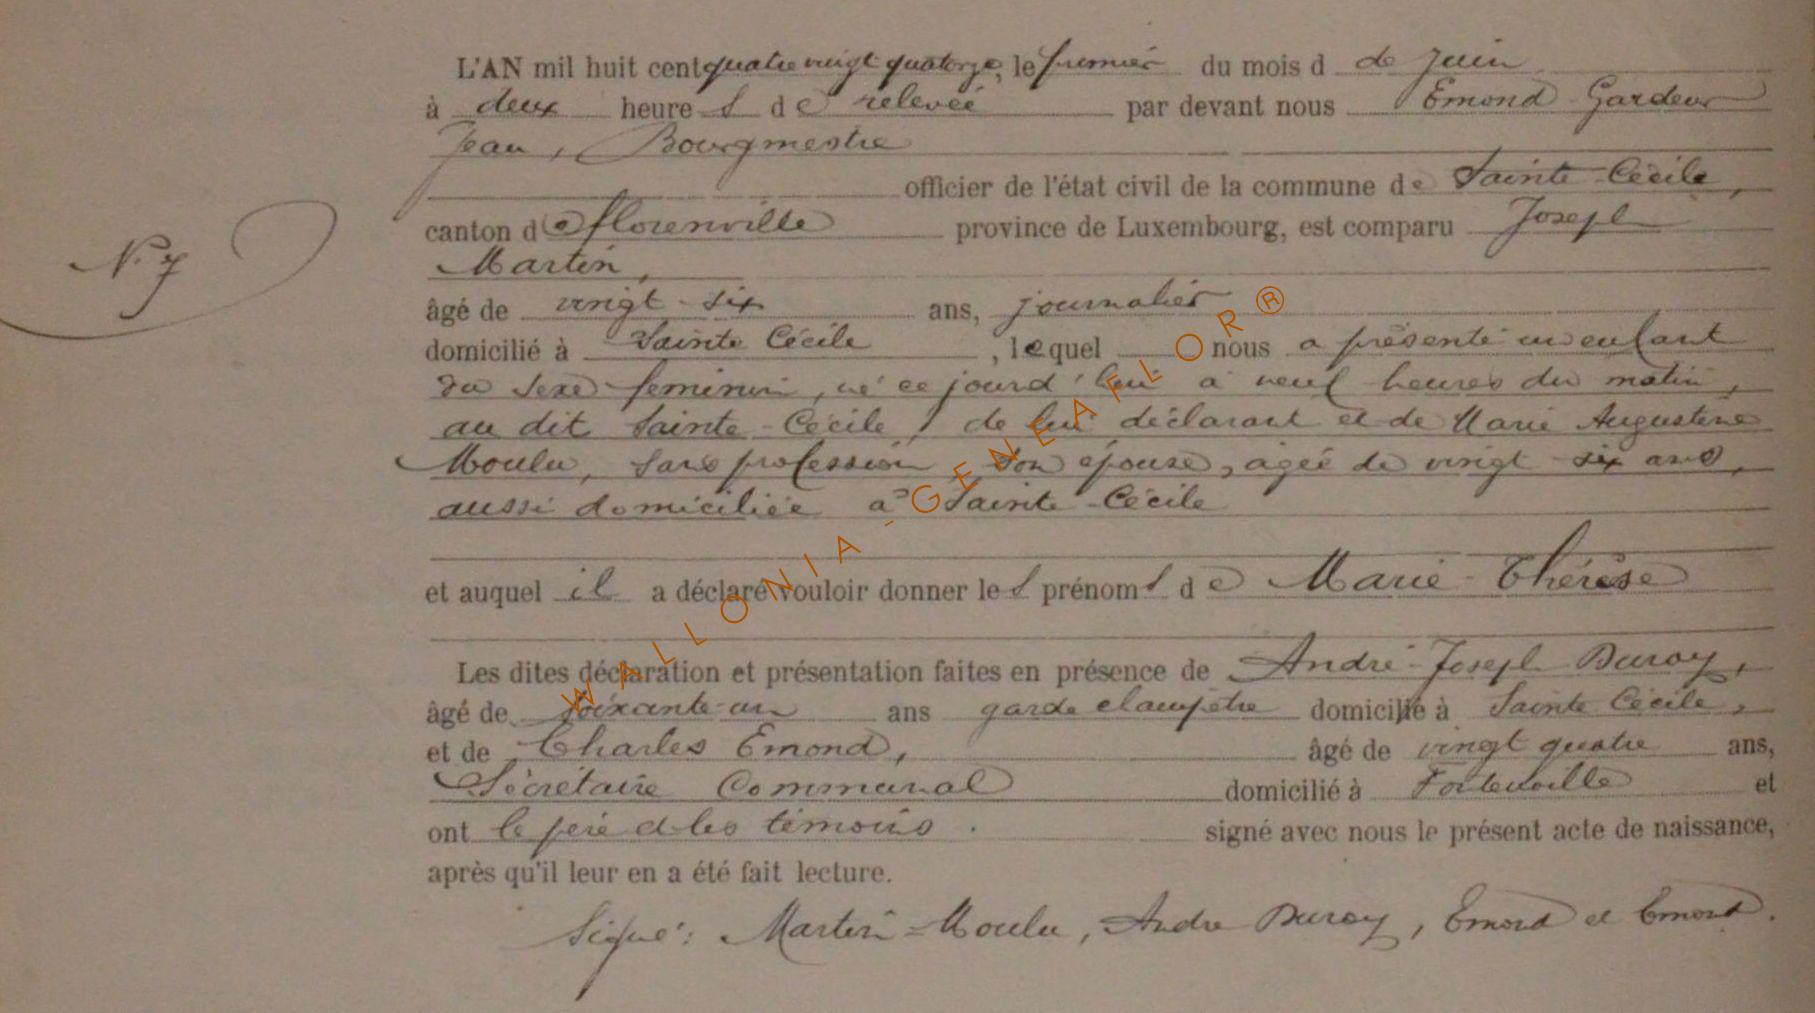 L'AN mil huit cent quatre vingt quatorze, le premier du mois d de Juin
à deux heures de relevée par devant nous Emond Gardeur
Jean, Bourgmestre
officier de l'état civil de la commune de Sainte-Cécile,
canton de Florenville province de Luxembourg, est comparu Joseph
N. 7
Martin,
âgé de vingt-six ans, journalier
domicilié à Sainte Cécile, lequel nous a présenté un enfant
du sexe feminin, né ce jourd'hui à neuf heures du matin,
au dit Sainte-Cécile, de lui déclarant et de Marie Augustine
Moulu, sans profession son épouse, agée de vingt-six ans,
aussi domiciliée à Sainte-Cécile
et auquel il a déclaré vouloir donner les prénoms de Marie-Thérèse
Les dites déclaration et présentation faites en présence de André-Joseph Duroy,
âgé de soixante-un ans garde champêtre domicilié à Sainte Cécile,
et de Charles Emond, âgé de vingt quatre ans,
Sécrétaire Communal domicilié à Fontenoille et
ont le père et les témoins. signé avec nous le présent acte de naissance,
après qu'il leur en a été fait lecture.
Signé: Martin-Moulu, Andre Duroy, Emond et Emond.
WALLONIA-GENEAFLOR®